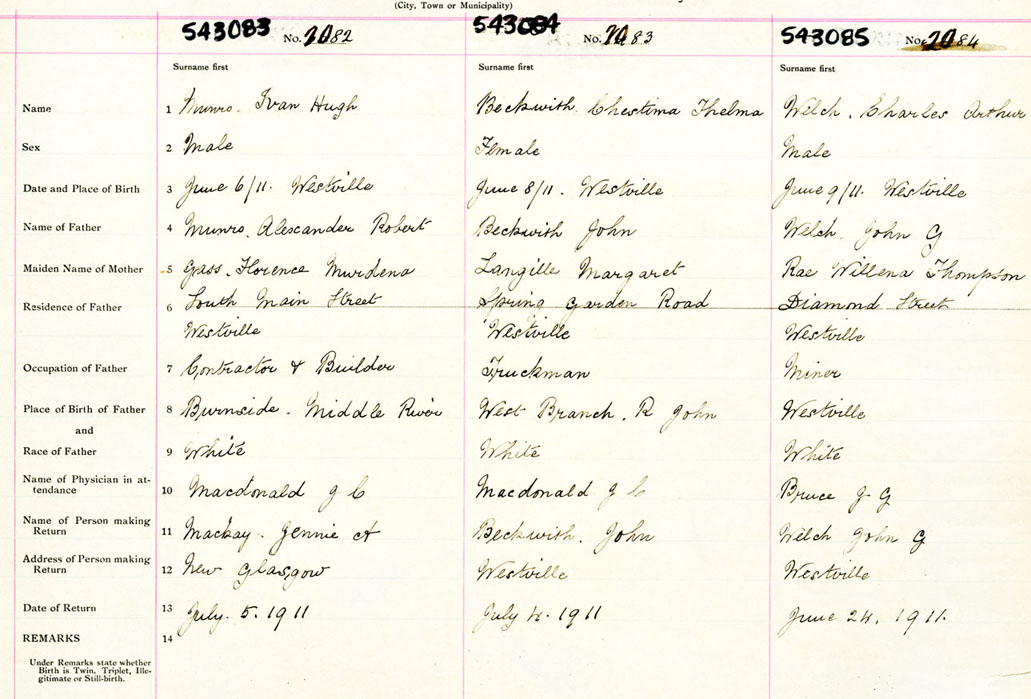 (City, Town or Municipality)
543083 No. 2082 543084 No. 2083 543085 No. 2084
Surname first Surname first Surname first
Name 1 Munro. Ivan Hugh Beckwith. Chestima Thelma Welch. Charles Arthur
Sex 2 Male Female Male
Date and Place of Birth 3 June 6/11. Westville June 8/11. Westville June 9/11. Westville
Name of Father 4 Munro. Alexander Robert Beckwith John Welch. John G
Maiden Name of Mother 5 Gass. Florence Murdena Langille Margaret Rae Willena Thompson
Residence of Father 6 South Main Street Spring Garden Road Diamond Street
Westville Westville Westville
Occupation of Father 7 Contractor & Builder Truckman Miner
Place of Birth of Father 8 Burnside. Middle River West Branch. R John Westville
and
Race of Father 9 White White White
Name of Physician in at-
tendance 10 Macdonald J C Macdonald J C Bruce J G
Name of Person making
Return 11 Mackay. Jennie A Beckwith. John Welch John G
Address of Person making
Return 12 New Glasgow Westville Westville
Date of Return 13 July. 5. 1911 July 4. 1911 June 24. 1911.
REMARKS 14
Under Remarks state whether
Birth is Twin, Triplet, Ille-
gitimate or Still-birth.